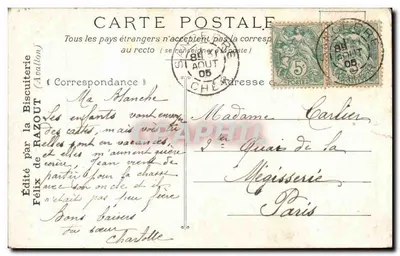 CARTE POSTALE
Tous les pays étrangers n'acceptent pas la corresp
au recto (se renseigner à la poste)
Correspondance
Adresse
AOUT
05
CHER
5
5
05
Édité par la Biscuiterie
Félix de RAZOUT (Avallon)
Ma Blanche
Les enfants vont envoyer
des cartes, mais
sont en vacances
et elles n'aiment guère
écrire. Jean vient de
partir pour la chasse
avec son oncle et il
n'était pas peu fier
Bons baisers
ta sœur
Charlotte
Madame Carlier
2 Quai de la
Mégisserie
Paris